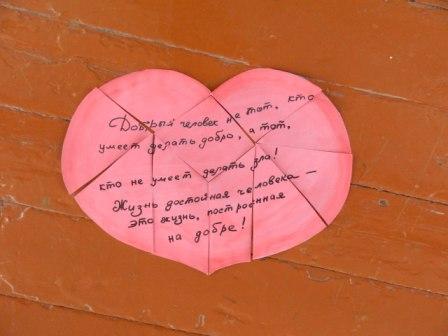 Добрый человек не тот, кто
умеет делать добро, а тот,
кто не умеет делать зла!
Жизнь достойная человека –
это жизнь, построенная
на добре!